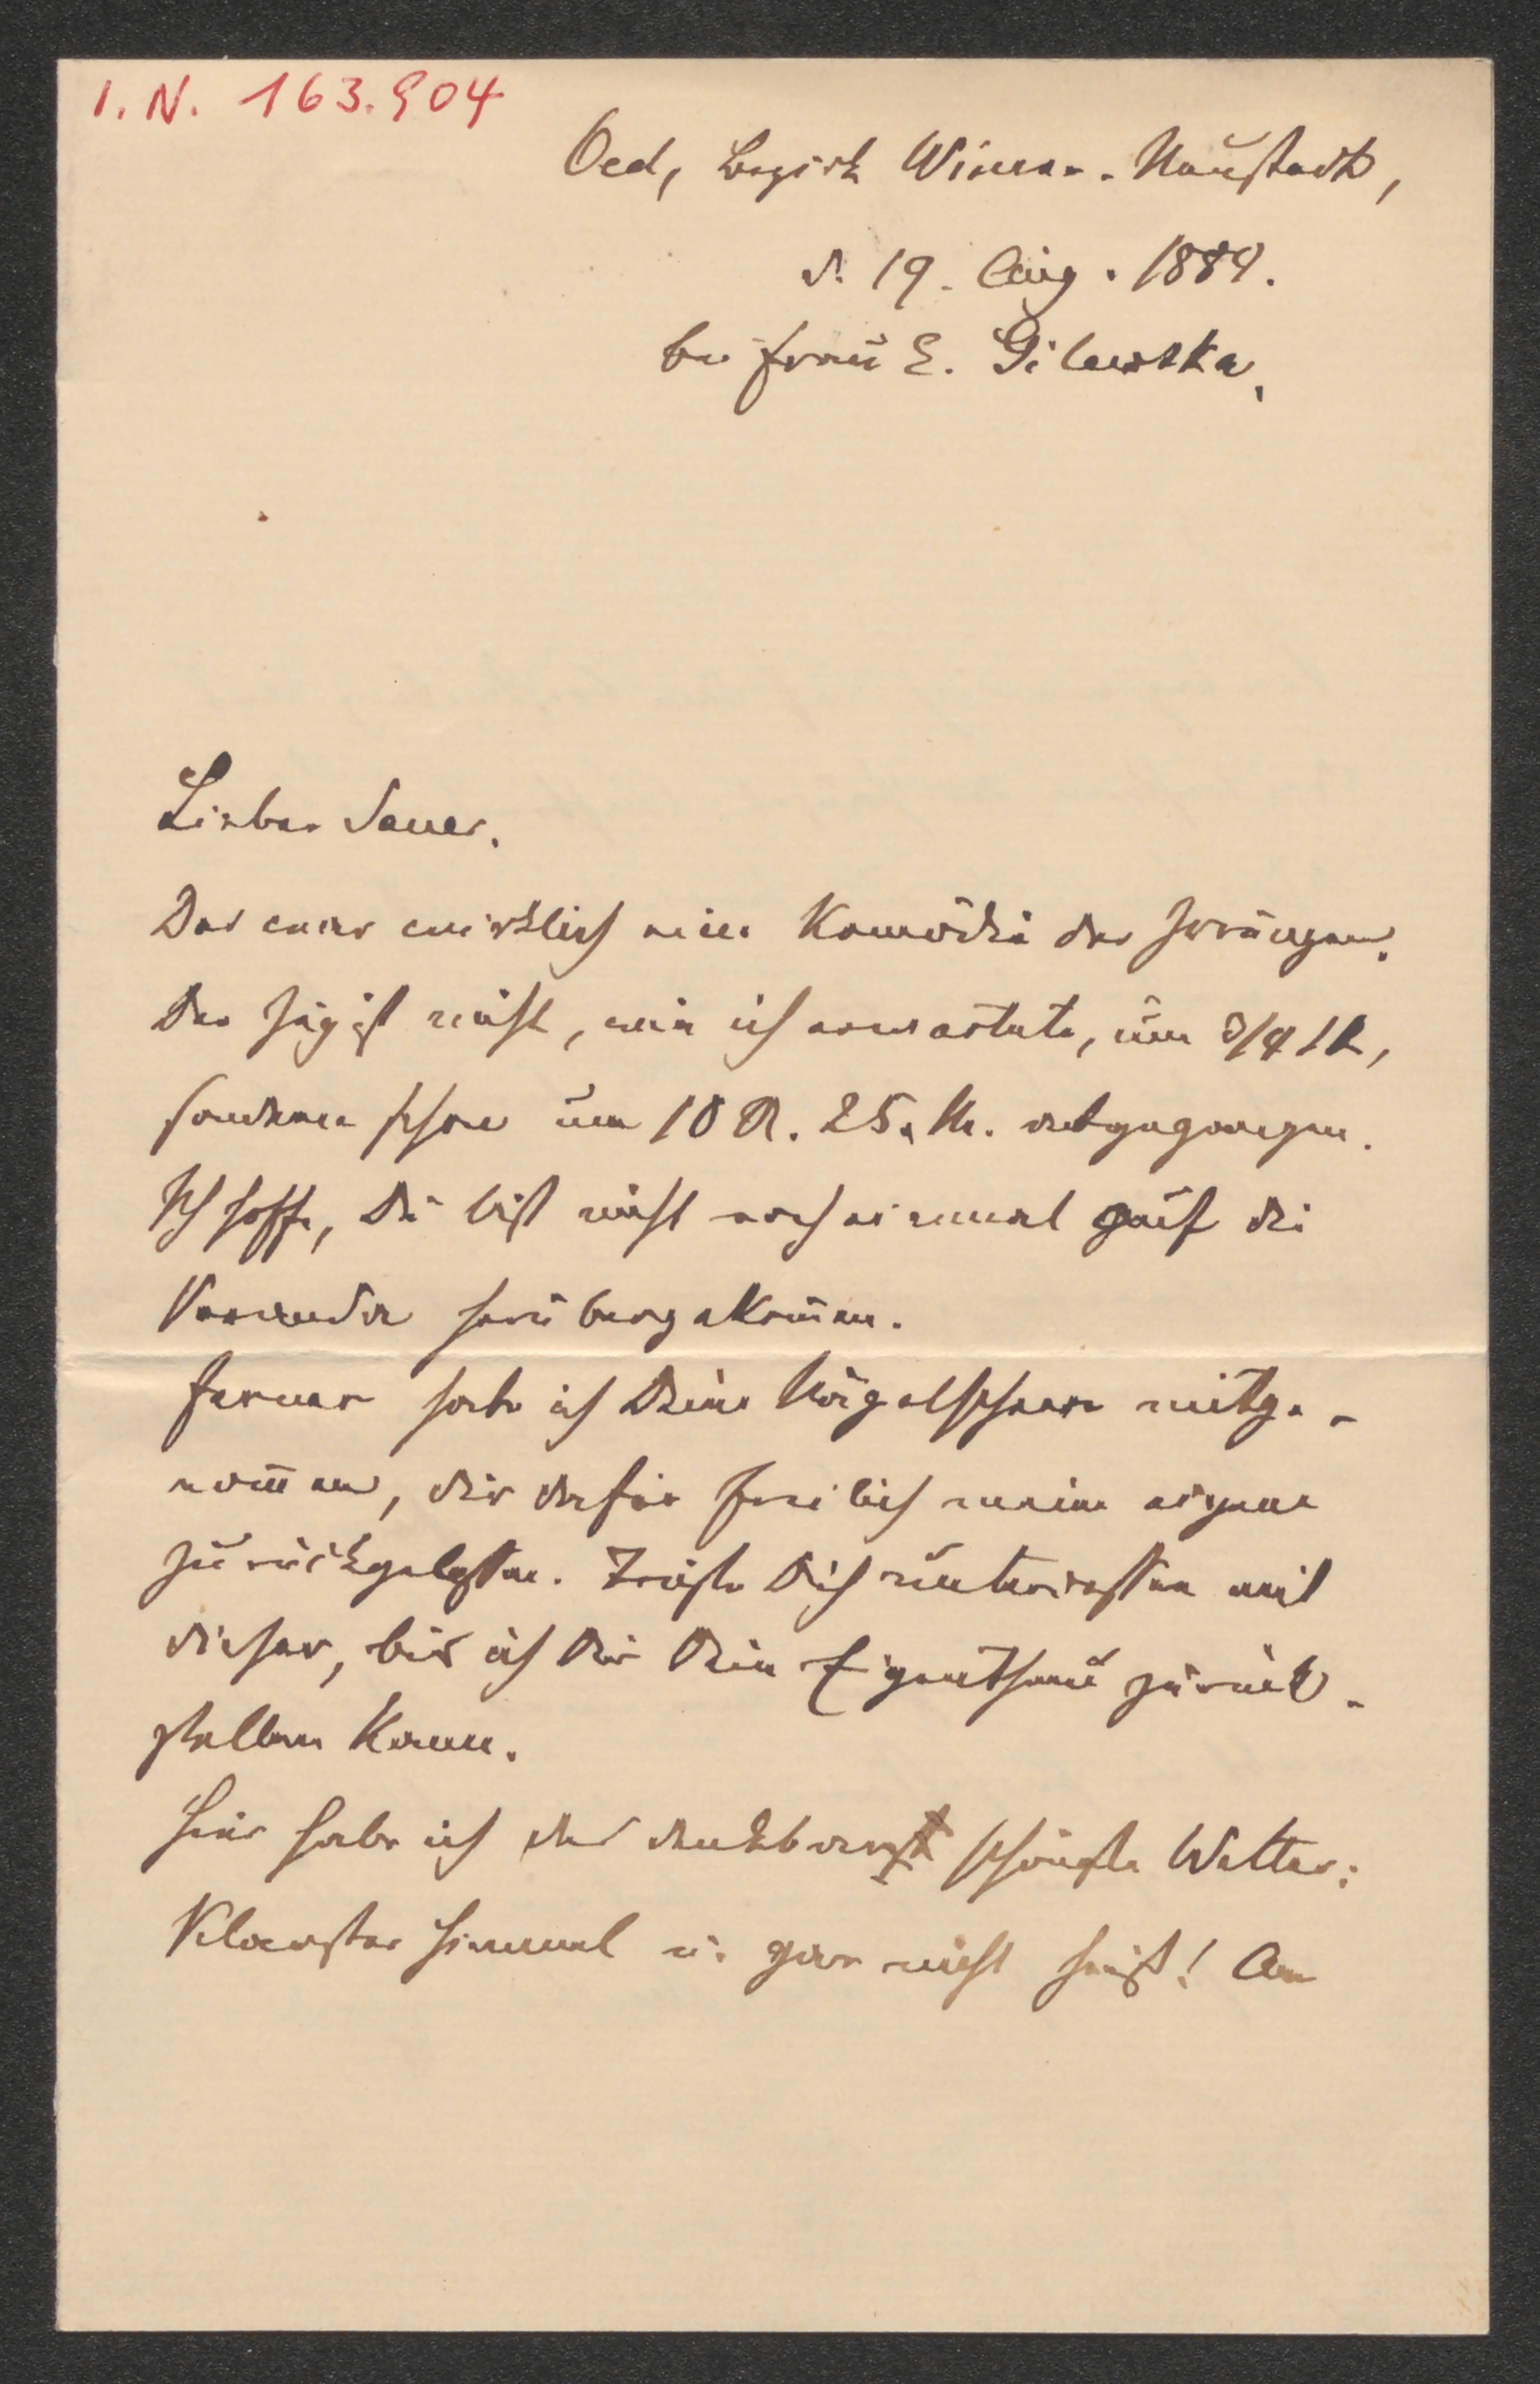 I. N. 163.904
Oed, Bezirk Wiener-Neustadt,
d. 19. Aug. 1889.
bei Frau E. Gilewska.
Lieber Sauer.
Das war wirklich eine Komödie der Irrungen.
Der Zug ist nicht, wie ich erwartete, um 3/4 12,
sondern schon um 10 U. 25. M. abgegangen.
Ich hoffe, Du bist nicht noch einmal auf die
Veranda herübergekom̄en.
Ferner habe ich Deine Nägelscheere mitge-
nom̄en, Dir dafür freilich meine eigene
zurückgelassen. Tröste Dich unterdessen mit
dieser, bis ich Dir Dein Eigenthum zurück-
stellen kann.
Hier habe ich das denkbar schönste Wetter:
Klarster Himmel u. gar nicht heiß! Am